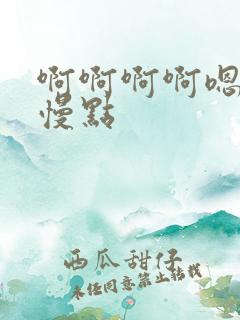 啊啊啊啊嗯
慢點
西瓜甜仔
未經同意禁止轉載